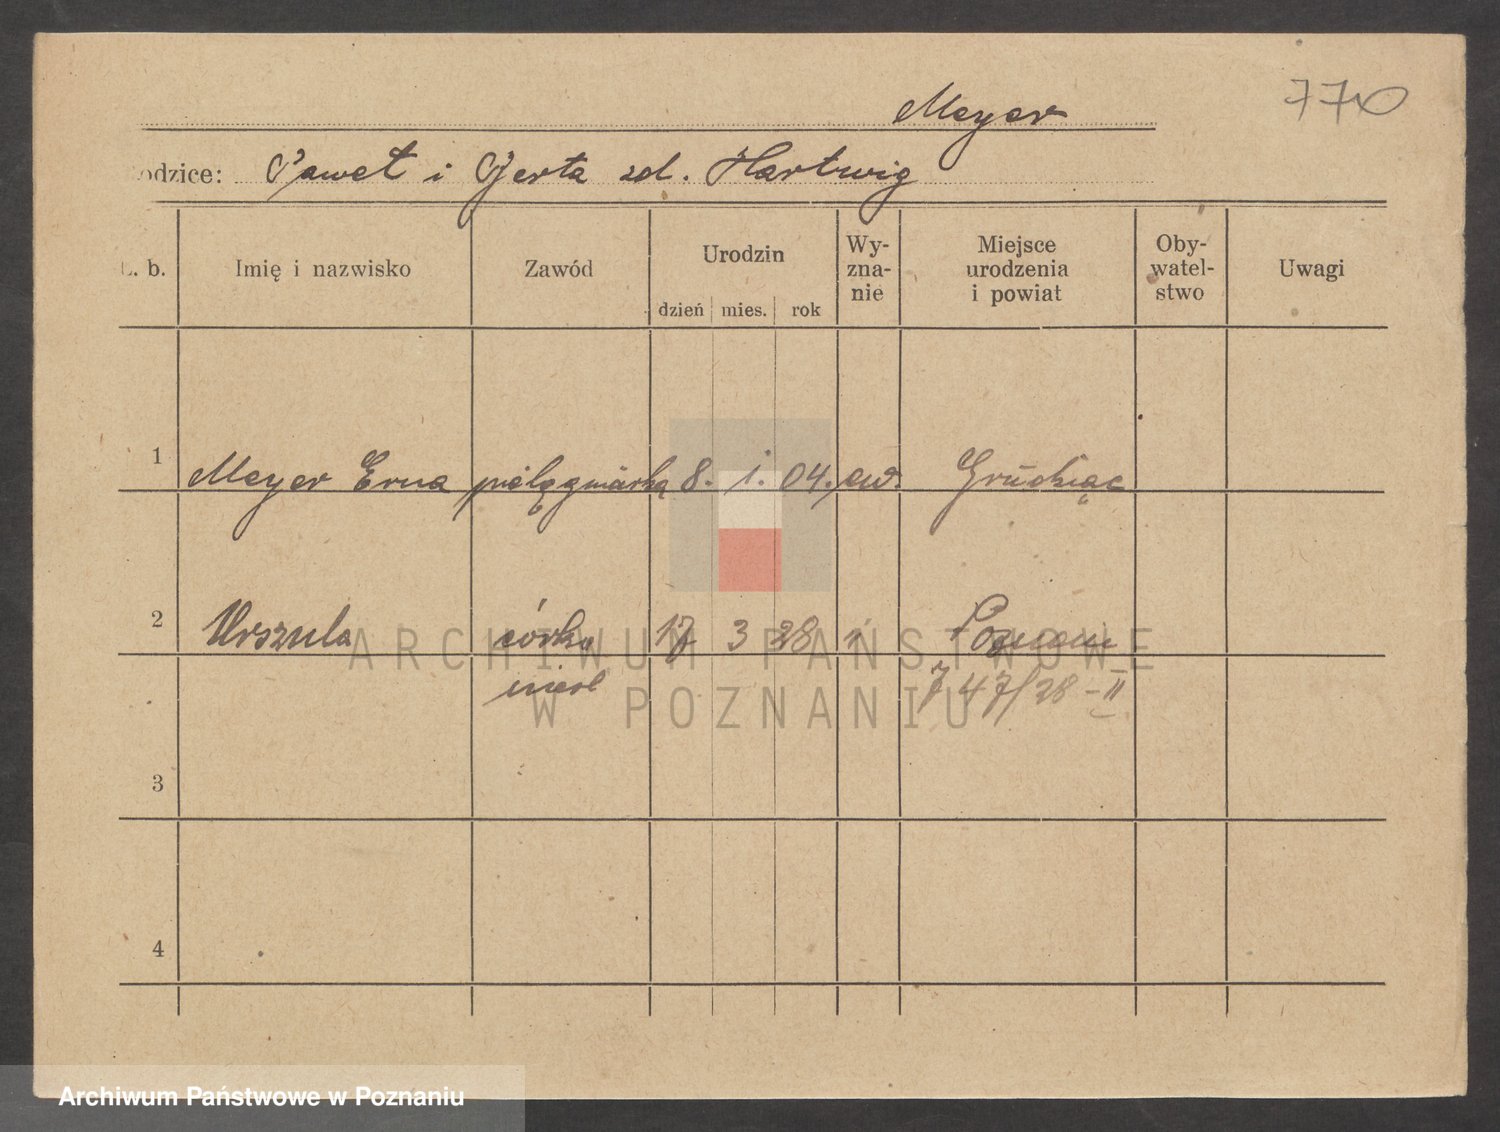 Meyer
770
odzice: Paweł i Gerta zd. Hartwig
L. b. Imię i nazwisko Zawód Urodzin dzień mies. rok Wy-zna-nie Miejsce urodzenia i powiat Oby-watel-stwo Uwagi
1 Meyer Erna pielęgniarka 8. 1. 04. ew. Grudziąc
2 Urszula córka 17 3 28 Poznań
nieśl 747/28-II
3
4
ARCHIWUM PAŃSTWOWE
W POZNANIU
Archiwum Państwowe w Poznaniu